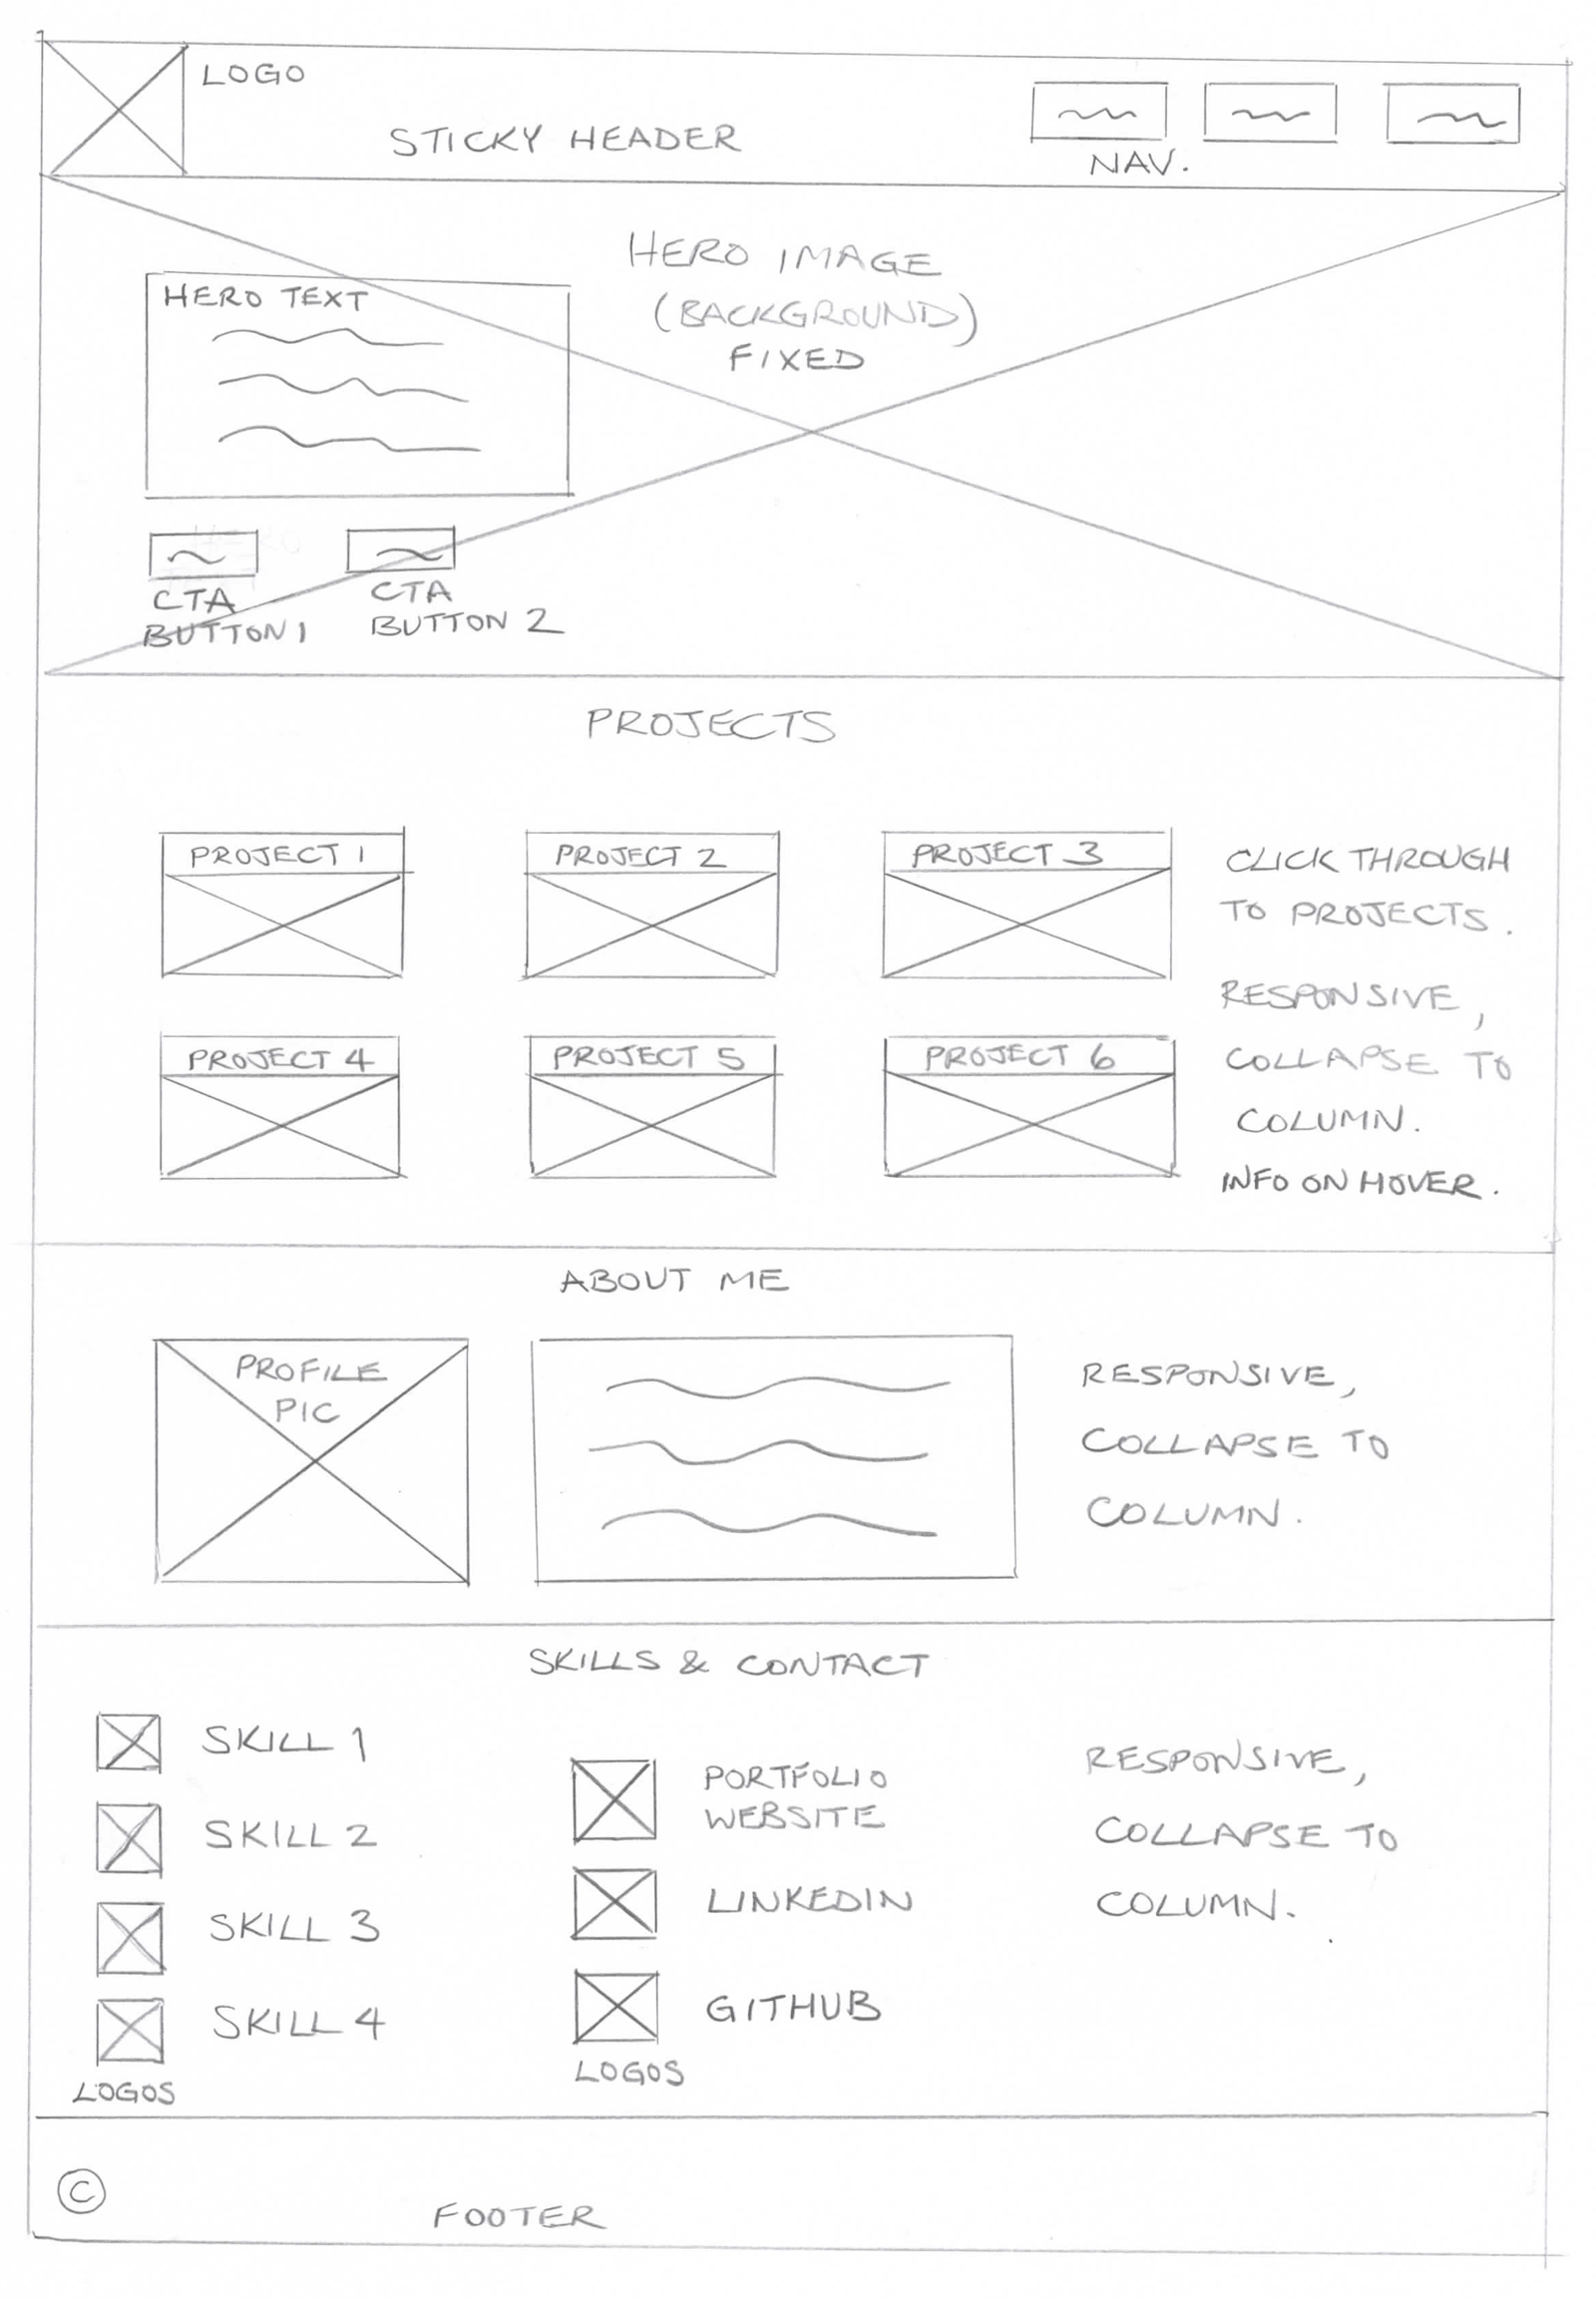 LOGO
STICKY HEADER
NAV.
HERO IMAGE
(BACKGROUND)
FIXED
HERO TEXT
CTA
BUTTON 1
CTA
BUTTON 2
PROJECTS
PROJECT 1
PROJECT 2
PROJECT 3
PROJECT 4
PROJECT 5
PROJECT 6
CLICK THROUGH
TO PROJECTS.
RESPONSIVE,
COLLAPSE TO
COLUMN.
INFO ON HOVER.
ABOUT ME
PROFILE
PIC
RESPONSIVE,
COLLAPSE TO
COLUMN.
SKILLS & CONTACT
SKILL 1
SKILL 2
SKILL 3
SKILL 4
LOGOS
PORTFOLIO
WEBSITE
LINKEDIN
GITHUB
LOGOS
RESPONSIVE,
COLLAPSE TO
COLUMN.
©
FOOTER